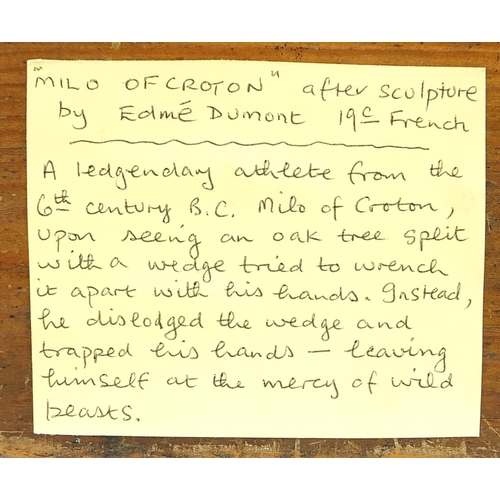 "MILO OF CROTON" after sculpture
by Edmé Dumont 19c French
A ledgendary athlete from the
6th century B.C. Milo of Croton,
upon seeing an oak tree split
with a wedge tried to wrench
it apart with his hands. Instead,
he dislodged the wedge and
trapped his hands — leaving
himself at the mercy of wild
beasts.